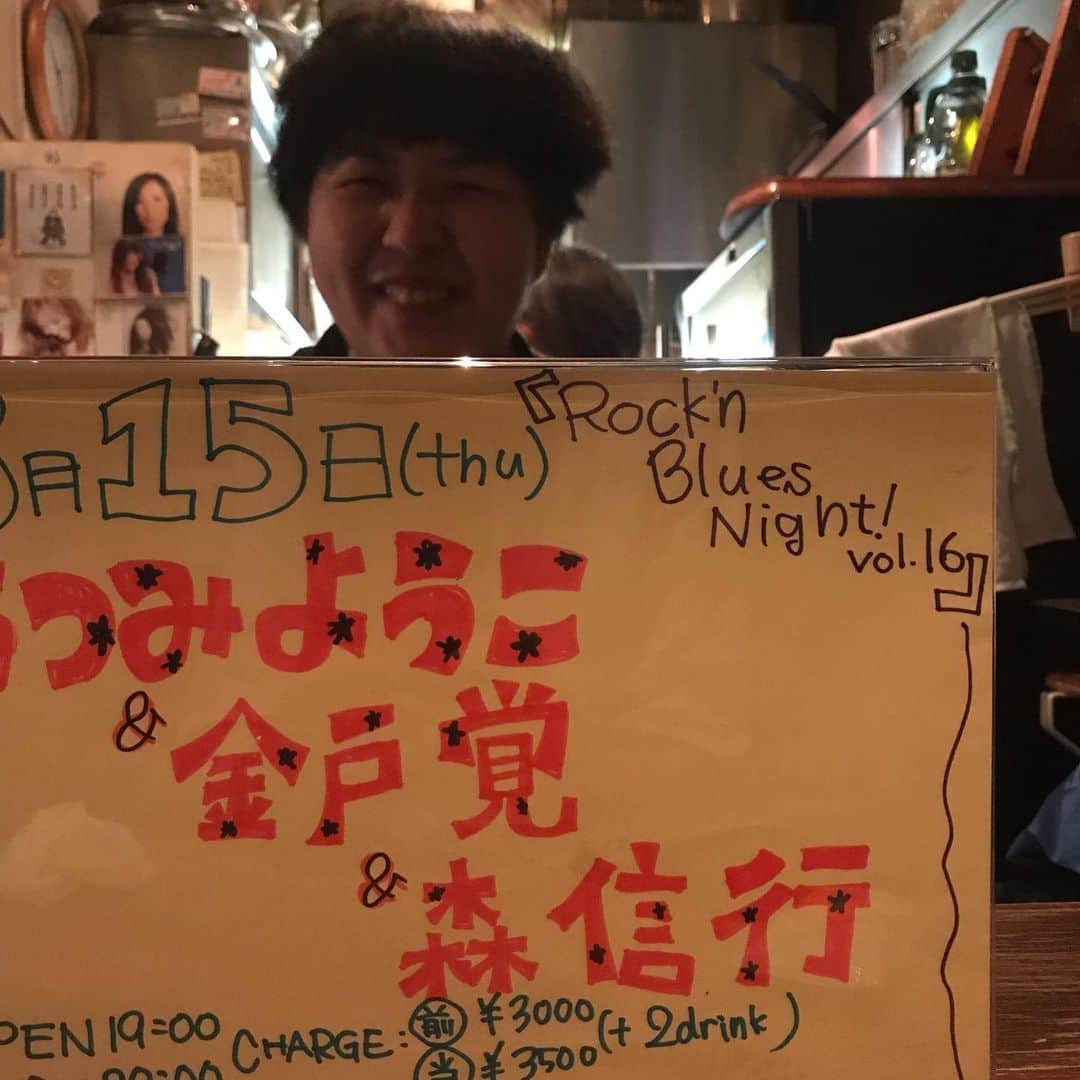 月15日(thu)
『Rock'n
Blues
Night!
vol.16』
つみようこ
&金戸覚
&森信行
PEN19:00
20:00
CHARGE:前¥3000(+2drink)
当¥3500